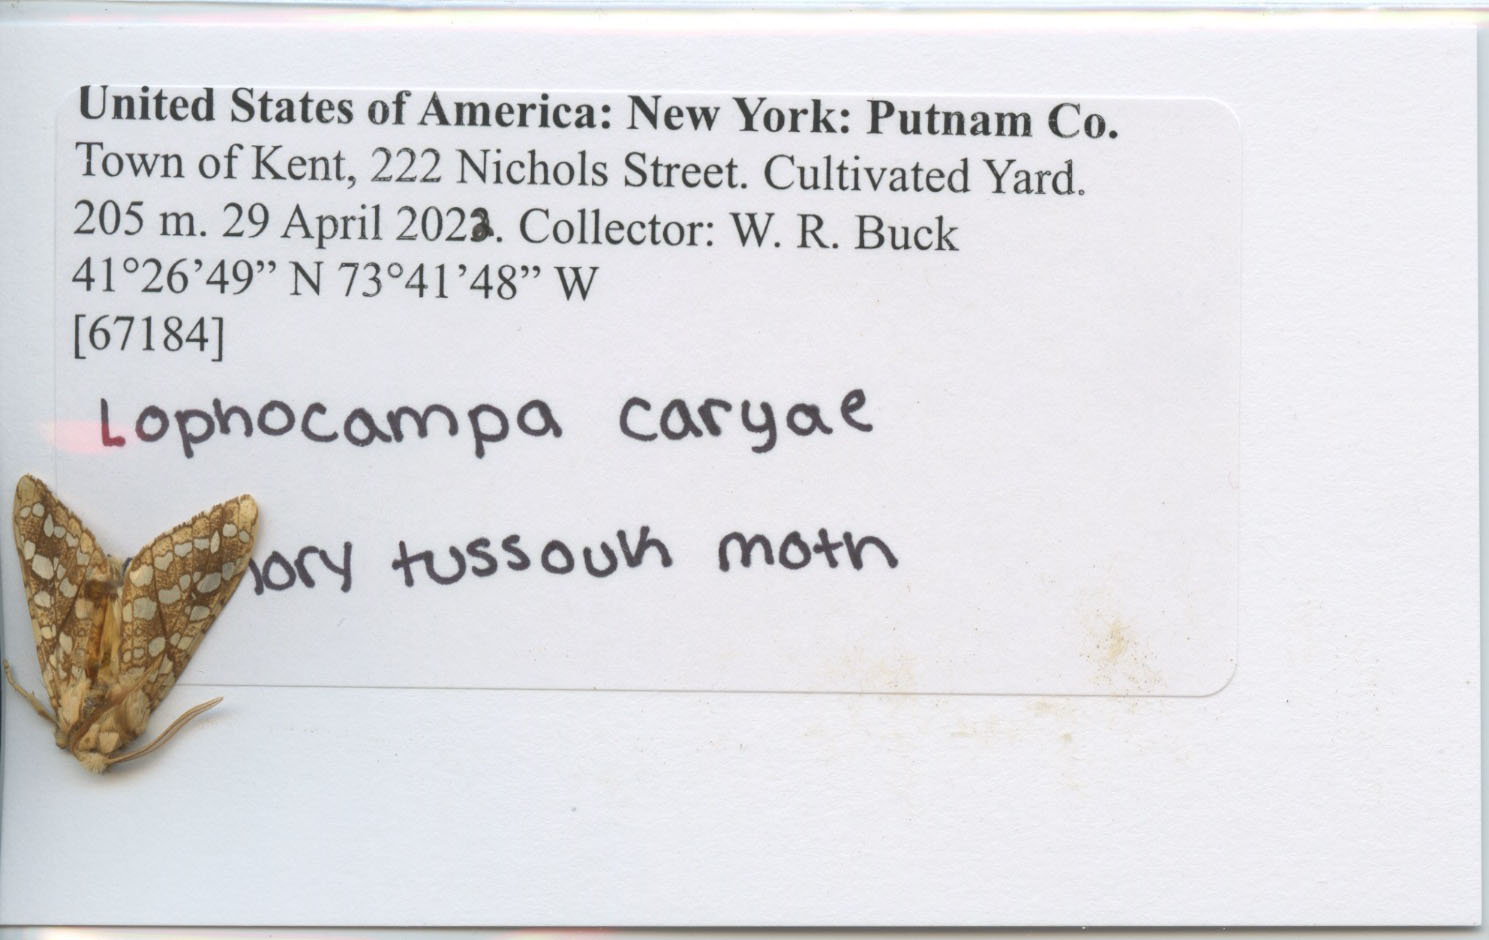 United States of America: New York: Putnam Co.
Town of Kent, 222 Nichols Street. Cultivated Yard.
205 m. 29 April 2022. Collector: W. R. Buck
41°26’49” N 73°41’48” W
[67184]
Lophocampa caryae
tussouh moth